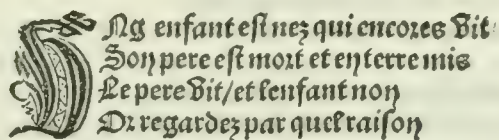 Vng enfant est nez qui encores vit
Son pere est mort et en terre mis
Le pere vit/et lenfant non
Or regardez par quel raison